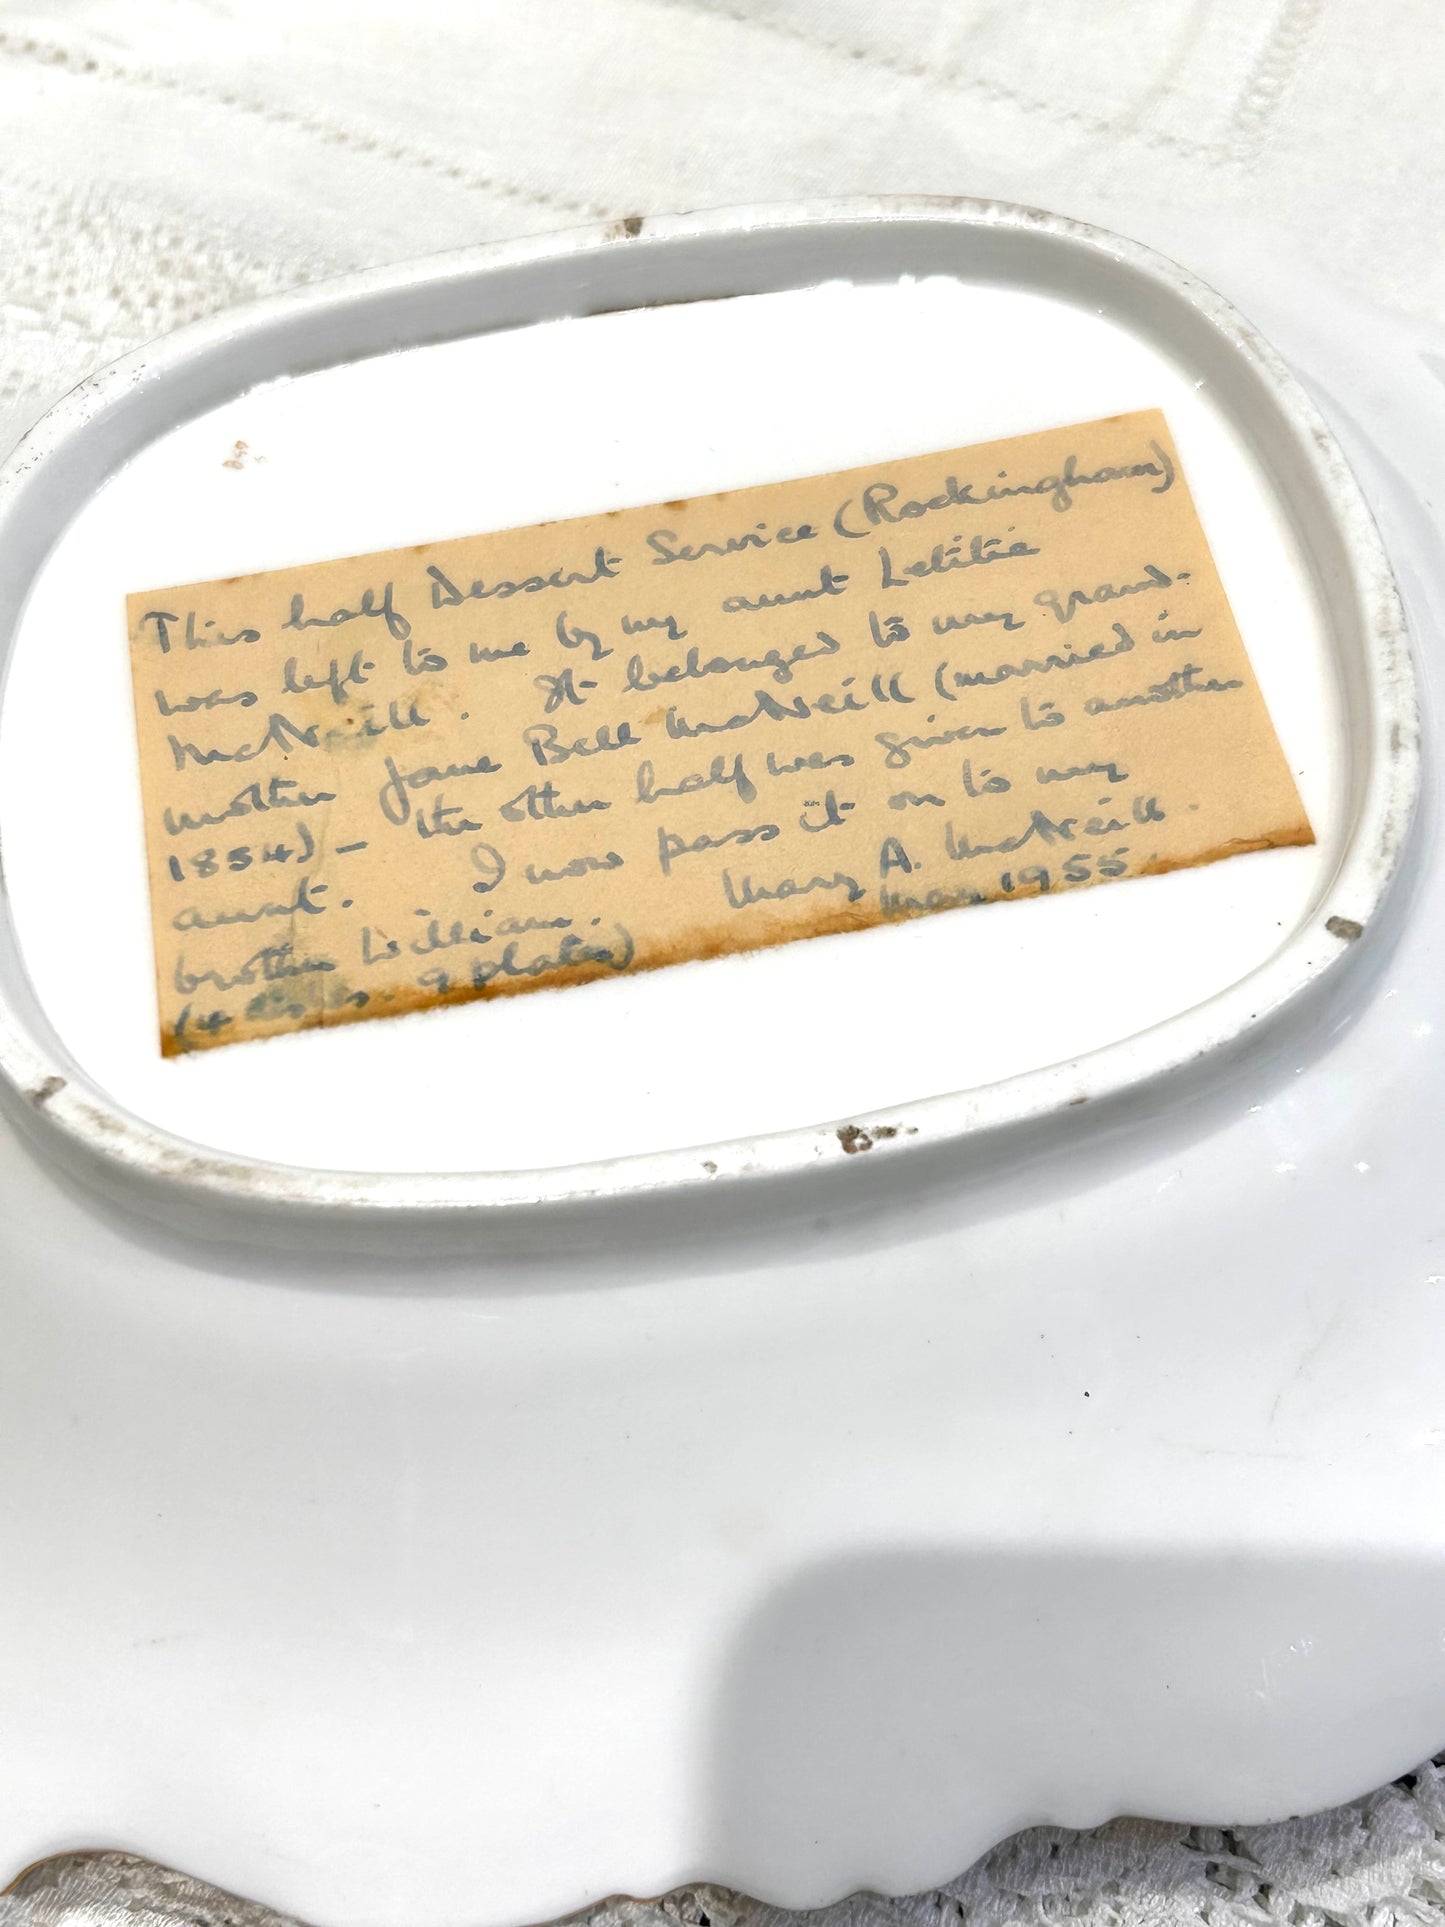 This half Dessert Service (Rockingham)
was left to me by my aunt Letitia
McNeill. It belonged to my grand-
mother Jane Bell McNeill (married in
1854) – the other half was given to another
aunt. I now pass it on to my
brother William. Mary A. McNeill.
(4 dishes. 9 plates) May 1955.